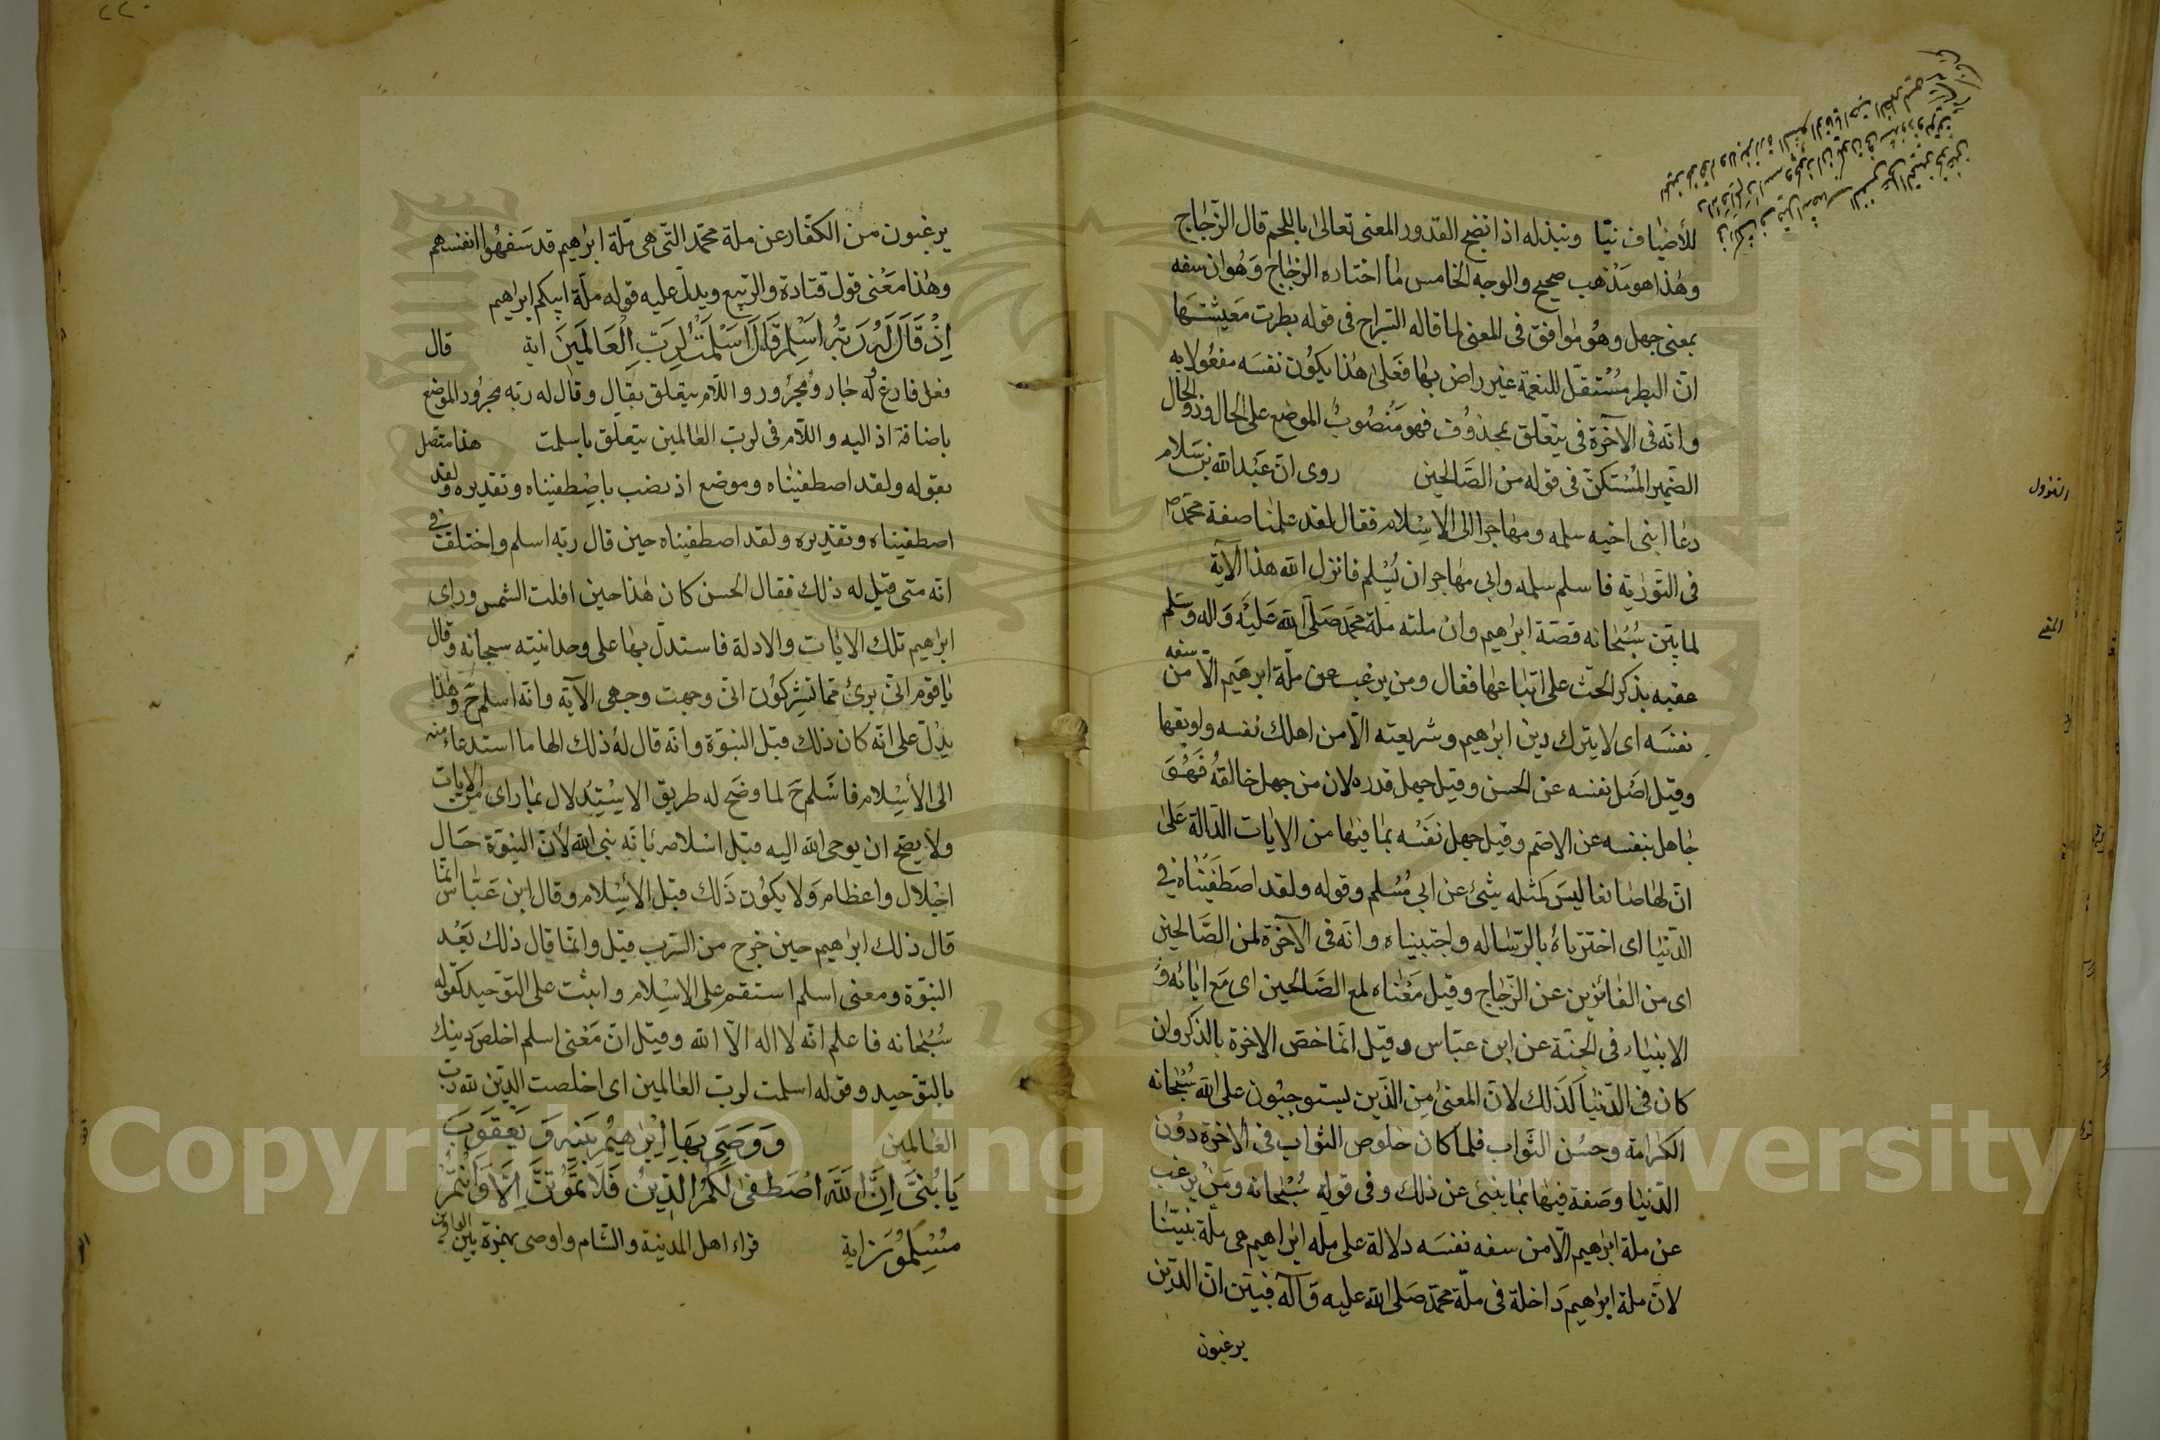 للأضياف نيّا ونبذله اذا نضج القدور المعنى تعالى باللحم قال الزّجاج
وهذا هو مذهب صحيح والوجه الخامس ما اختاره الزجاج وهو ان سفه
بمعنى جهل وهو موافق فى المعنى لما قاله السراج فى قوله بطرت معيشتها
انّ البطر مستقلّ للنعمة غير راض بها فعلى هذا يكون نفسه مفعولا به
وانه فى الآخرة فى يتعلق بمحذوف فهو منصوب الموضع على الحال وذو الحال
الضمير المستكنّ فى قوله من الصالحين روى انّ عبد الله بن سلام
دعا ابنى اخيه سلمه ومهاجرا الى الاسلام فقال لقد علمنا صفة محمد ص
فى التورية فاسلم سلمه وابى مهاجر ان يسلم فانزل الله هذا الآية
لما بيّن سبحانه قصّة ابرهيم وان ملته ملة محمد صلى الله عليه واله وسلم
عقبه بذكر الحثّ على اتباعها فقال ومن يرغب عن ملّة ابرهيم الّا من سفه
نفسه اى لا يترك دين ابرهيم وشريعته الّا من اهلك نفسه واوبقها
وقيل اضل نفسه عن الحسن وقيل جهل قدره لان من جهل خالقه فهو
جاهل بنفسه عن الاصم وقيل جهل نفسه بما فيها من الايات الدالة على
انّ لها صانعا ليس كمثله شئ عن ابي مسلم وقوله ولقد اصطفيناه فى
الدّنيا اى اخترناه بالرّساله واجتبيناه وانه فى الآخرة لمن الصّالحين
اى من الفائزين عن الزجاج وقيل معناه لمع الصّالحين اى مع ابائه و
الانبياء فى الجنة عن ابن عباس وقيل انما خصّ الاخرة بالذكر وان
كان فى الدّنيا كذلك لانّ المعنى من الذين يستوجبون على الله سبحانه
الكرامة وحسن الثّواب فلما كان خلوص الثواب فى الاخرة دون
الدّنيا وصفه فيها بما ينبئ عن ذلك وفى قوله سبحانه ومن يرغب
عن ملة ابرهيم الّا من سفه نفسه دلالة على ان ملة ابراهيم هى ملّة نبيّنا
لانّ ملة ابرهيم داخلة فى ملّة محمّد صلى الله عليه وآله فبيّن انّ الذين
يرغبون
يرغبون من الكفّار عن ملة محمّد التى هى ملّة ابرهيم قد سفهوا انفسهم
وهذا معنى قول قتادة والربيع ويدلّ عليه قوله ملّة ابيكم ابراهيم
اذ قال له ربه اسلم قال اسلمت لرب العالمين اية قال
فعل فارغ له جار ومجرور واللام يتعلق بقال وقال له ربه مجرور الموضع
باضافة اذ اليه واللام فى لرب العالمين يتعلق باسلمت هذا متصل
بقوله ولقد اصطفيناه وموضع اذ نصب باصطفيناه وتقديره ولقد
اصطفيناه وتقديره ولقد اصطفيناه حين قال ربه اسلم واختلف فى
انه متى قيل له ذلك فقال الحسن كان هذا حين افلت الشمس وراى
ابرهيم تلك الايات والادلة فاستدلّ بها على وحدانيته سبحانه وقال
يا قوم انّى برئ ممّا تشركون انى وجهت وجهى الآية وانه اسلم ح وهذا
يدلّ على انّه كان ذلك قبل النبوّة وانه قال له ذلك الهاما استدعاء منه
الى الاسلام فاسلم ح لما وضح له طريق الاستدلال بما راى من الايات
ولا يصح ان يوحى الله اليه قبل اسلامه بانّه نبى الله لانّ النبوّة حال
اجلال واعظام ولا يكون ذلك قبل الاسلام وقال ابن عباس انّما
قال ذلك ابرهيم حين خرج من السّرب قيل وانما قال ذلك بعد
النبوّة ومعنى اسلم استقم على الاسلام واثبت على التوحيد كقوله
سبحانه فاعلم انّه لا اله الّا الله وقيل انّ معنى اسلم اخلص دينك
بالتوحيد وقوله اسلمت لرب العالمين اى اخلصت الدّين لله رب
العالمين ووصى بها ابرهيم بنيه ويعقوب
يا بنىّ ان الله اصطفى لكم الدين فلا تموتن الا وانتم
مسلمون اية قراء اهل المدينة والشام واوصى بهمزة بين الواوين
Copyright © King Saud University
195